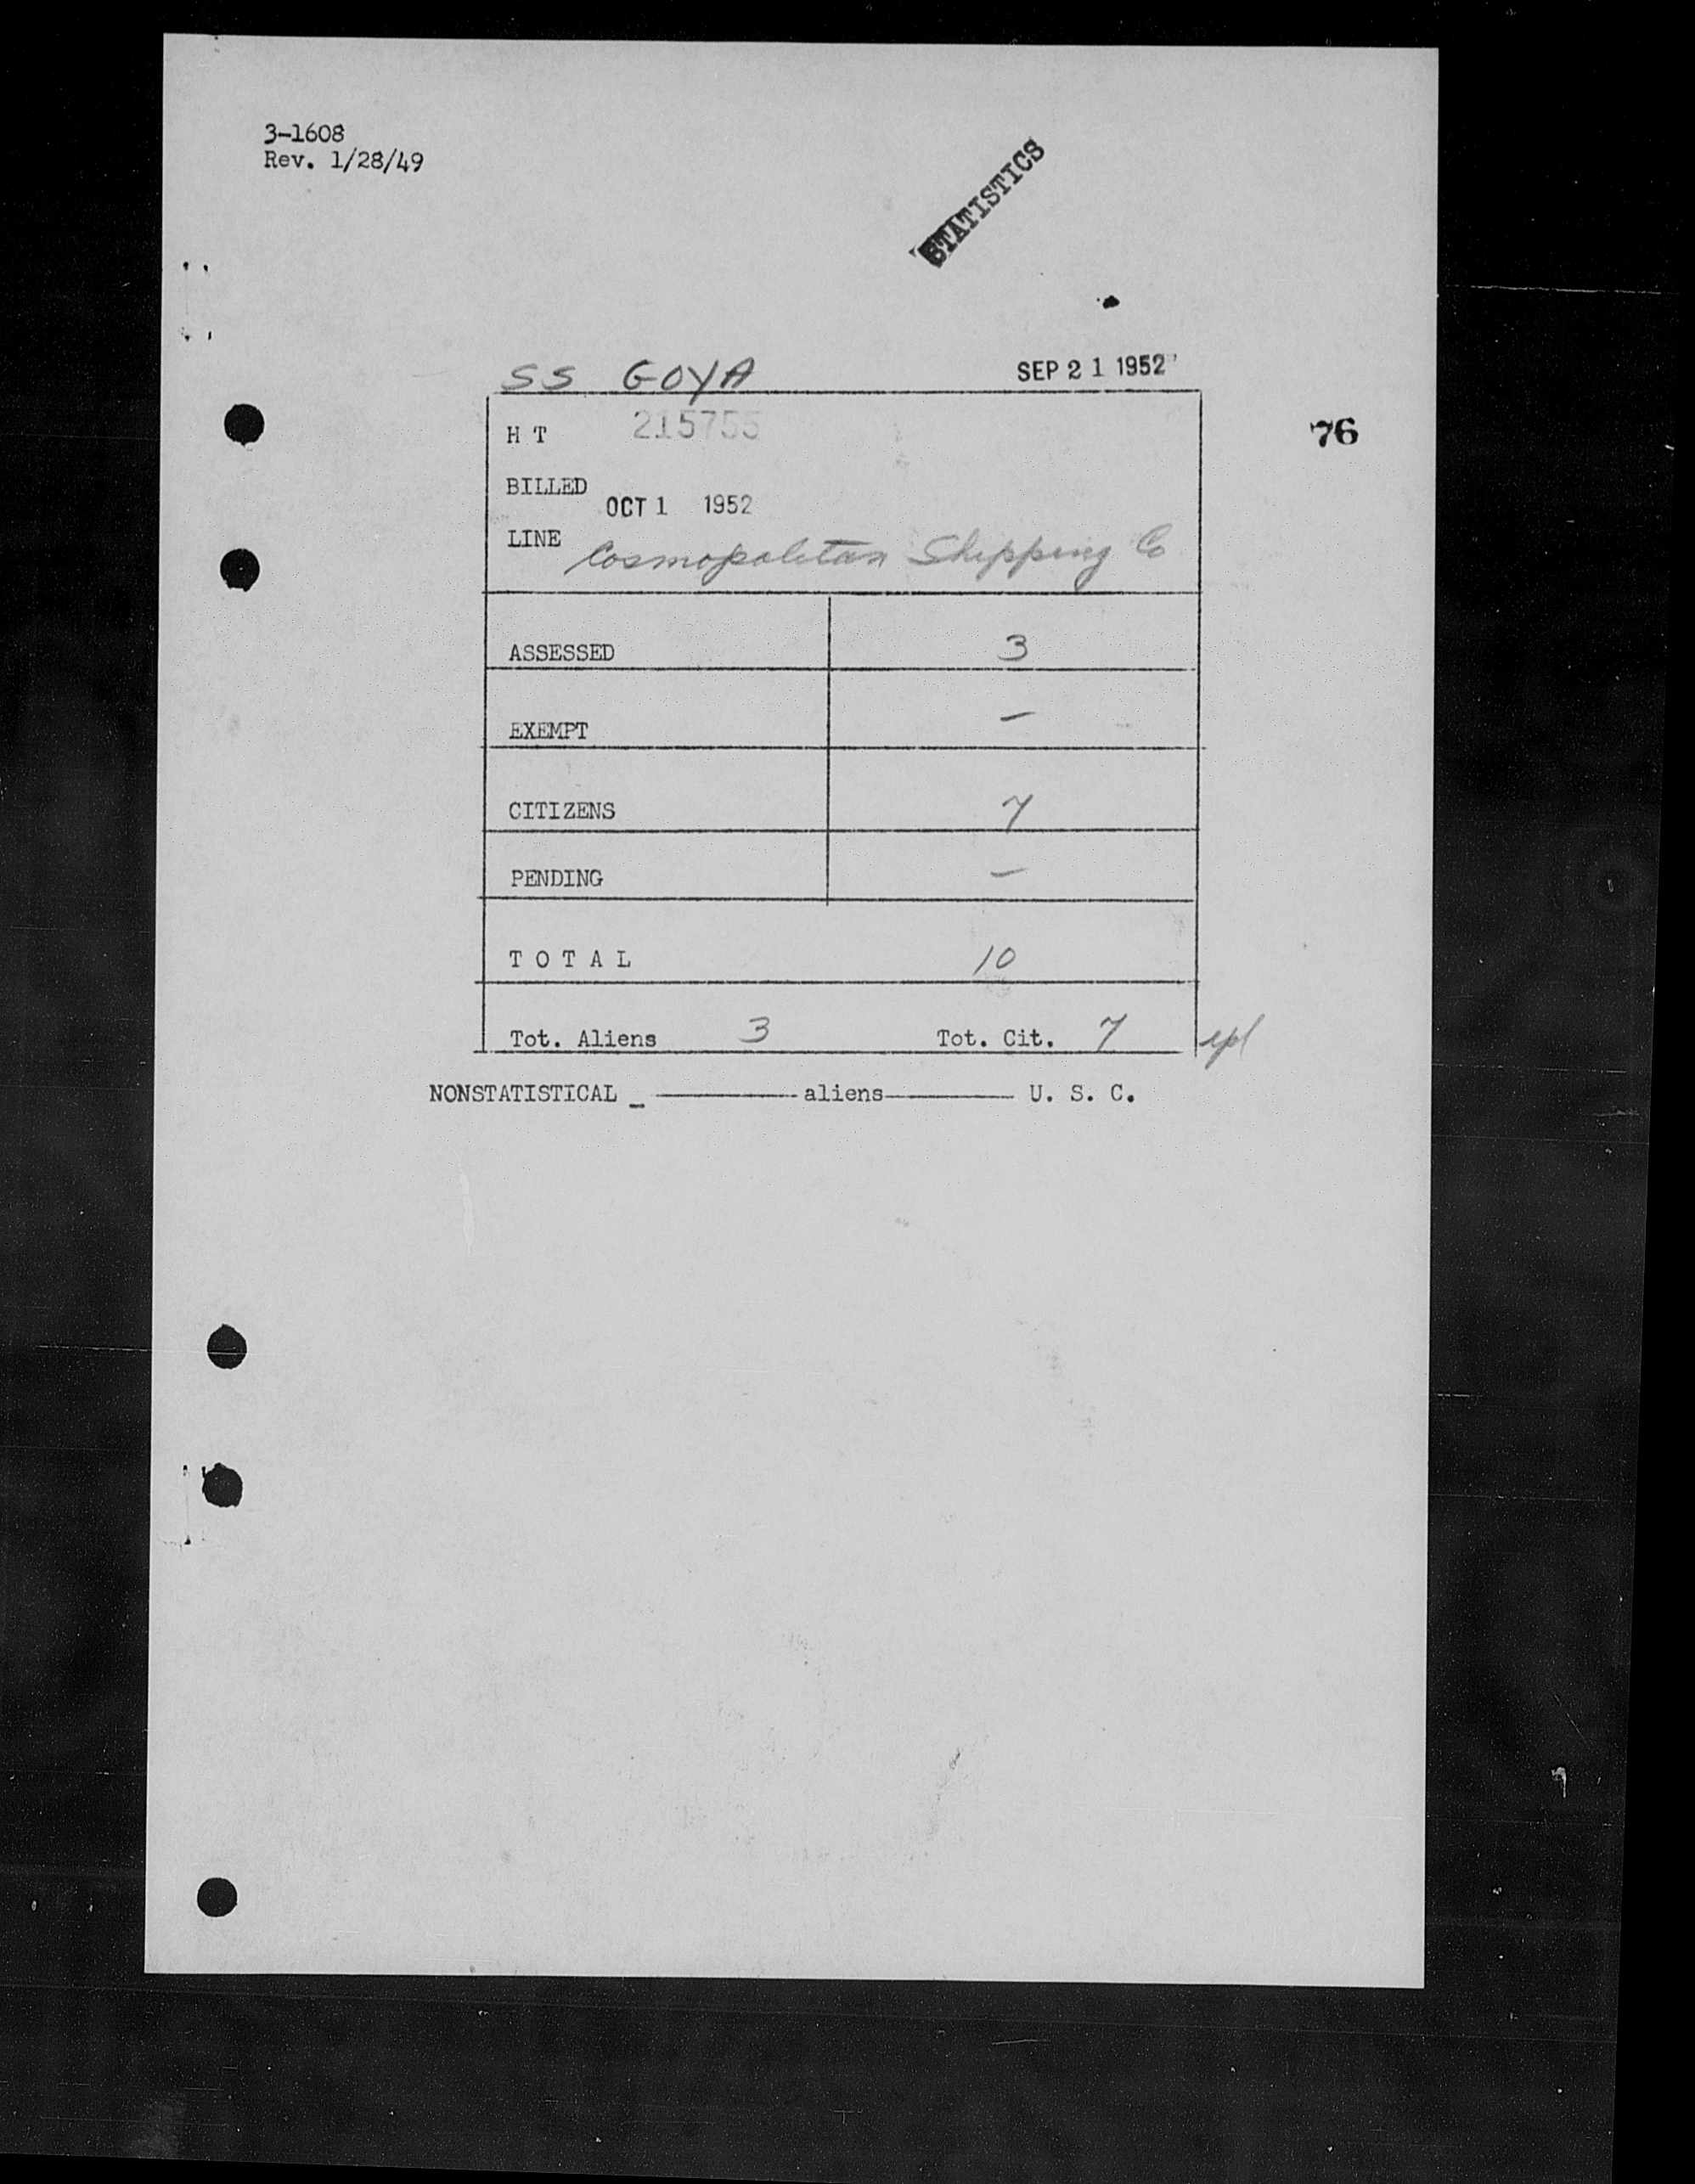 3-1608
Rev. 1/28/49
STATISTICS
SS GOYA SEP 21 1952
76
H T 215755
BILLED OCT 1 1952
LINE Cosmopolitan Shipping Co
ASSESSED 3
EXEMPT –
CITIZENS 7
PENDING –
T O T A L 10
Tot. Aliens 3 Tot. Cit. 7
NONSTATISTICAL _ ———— aliens ———— U. S. C.